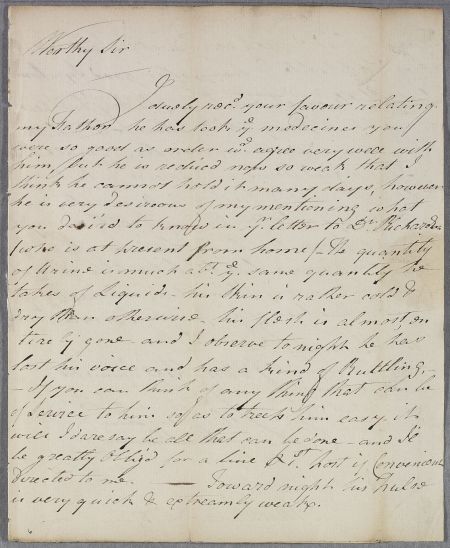 Worthy Sir
I duely rec.d your favour relating
my Father he has took y.e medecines you
were so good as order w.ch agree very well with
him, but he is reduced now so weak that I
think he cannot hold it many days, however
he is very desireous of my mentioning what
you desir'd to know in y.r letter to D.r Richardson
(who is at present from home) - the quantity
of Urine is much ab.t y.e same quantity he
takes of Liquids - his skin is rather cold &
dry than otherwise his flesh is almost en
tirely gone and I observe to night he has
lost his voice and has a kind of Ruttling
- If you can think of any thing that can be
of Service to him so as to keep him easy it
will I dare say be all that can be done - and I'd
be greatly Oblig'd for a line p.r post if Convenient
Directed to me. — Toward night his Pulse
is very quick & extreamly weak.